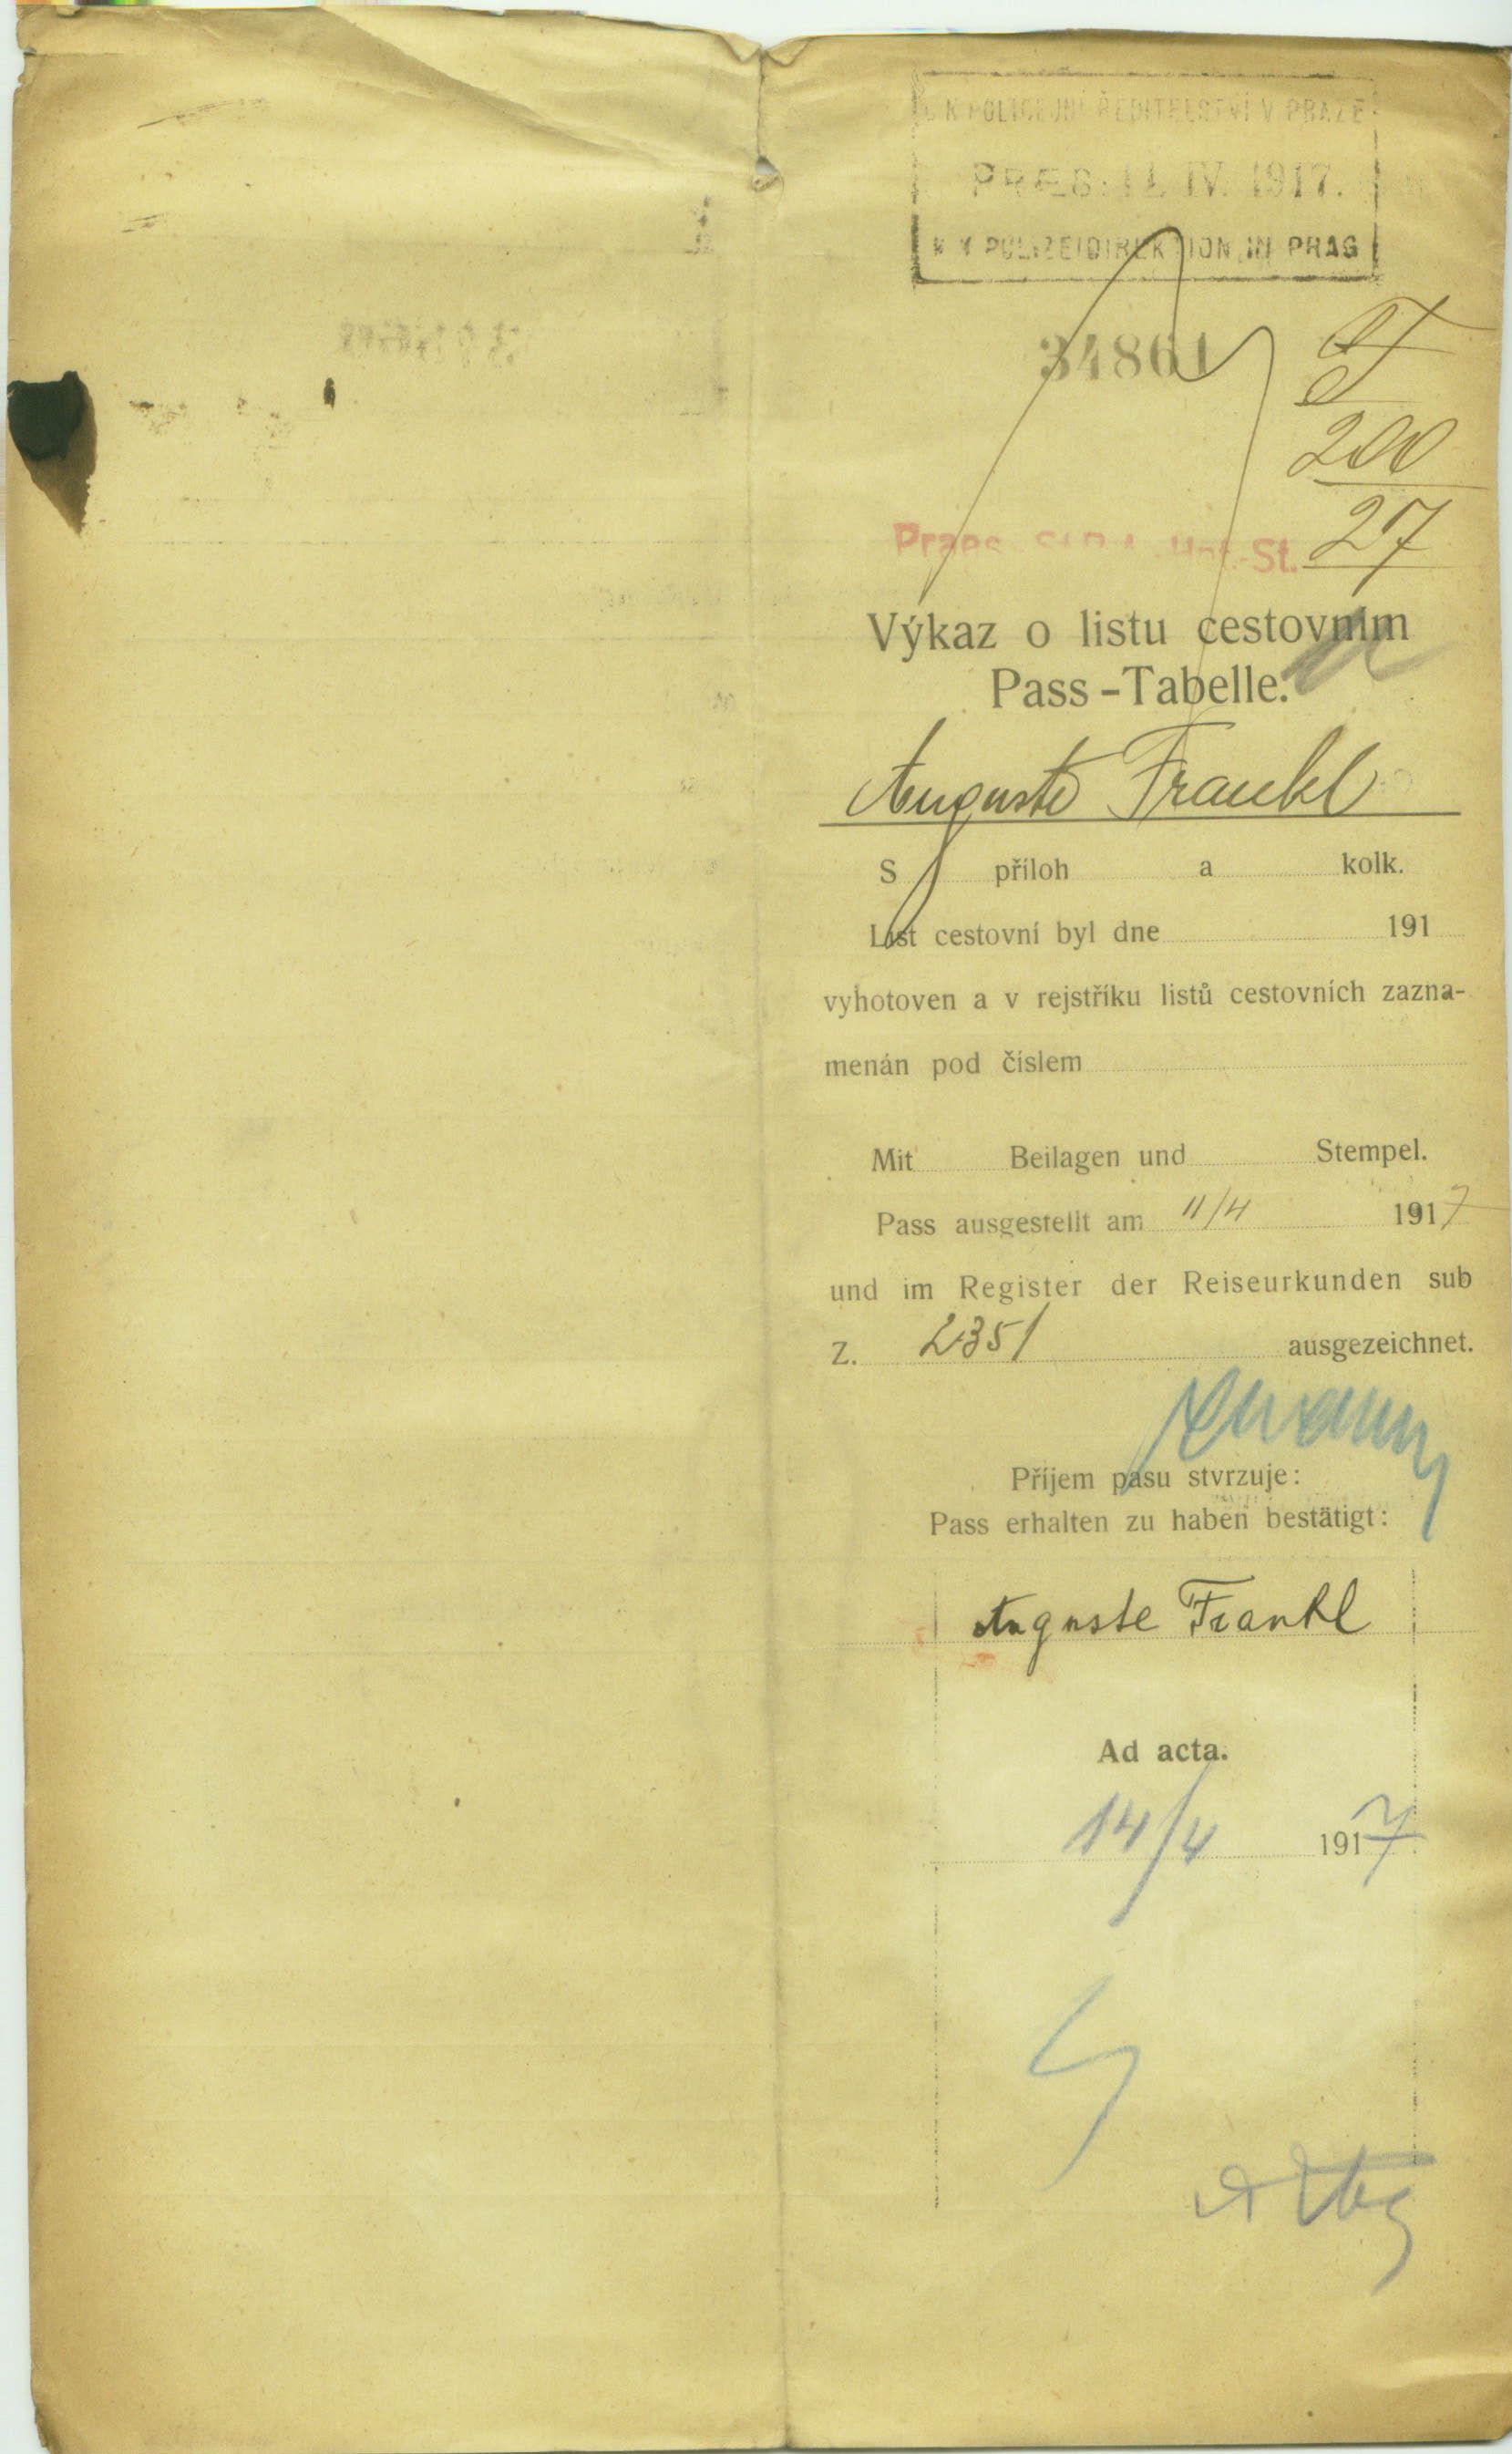 C. K. POLICEJNÍ ŘEDITELSTVÍ V PRAZE
PRÆS: 11. IV. 1917.
K. K. POLIZEIDIREKTION IN PRAG
34861
F
200
27
Praes. St.
Výkaz o listu cestovním
Pass-Tabelle.
Auguste Frankl
S příloh a kolk.
List cestovní byl dne 191
vyhotoven a v rejstříku listů cestovních zazna-
menán pod číslem
Mit Beilagen und Stempel.
Pass ausgestellt am 11/4 1917
und im Register der Reiseurkunden sub
Z. 2351 ausgezeichnet.
Příjem pasu stvrzuje:
Pass erhalten zu haben bestätigt:
Auguste Frankl
Ad acta.
14/4 1917